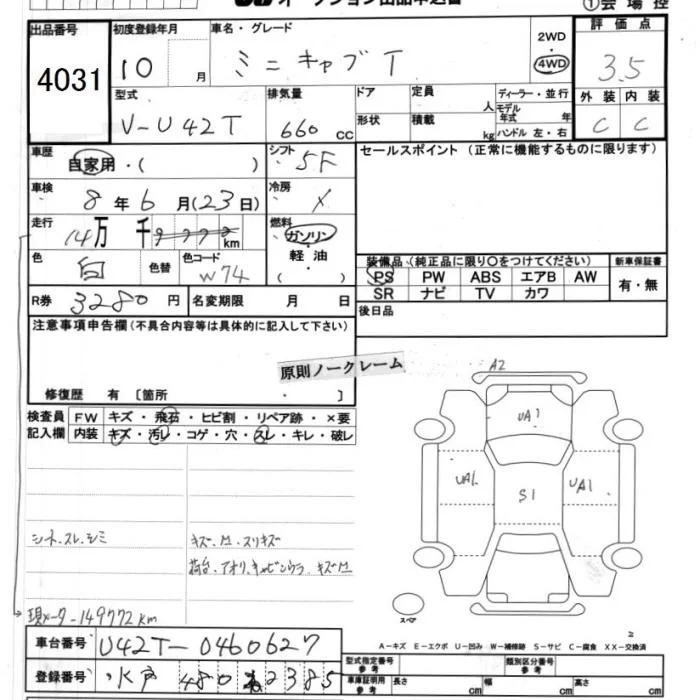 ①会場控
出品番号
4031
初度登録年月
10 月
車名・グレード
ミニキャブT
2WD
・
4WD
評価点
3.5
型式
V-U42T
排気量
660 CC
ドア
形状
定員 人
積載 kg
ディーラー・並行
モデル年式 年
ハンドル 左・右
外装 内装
C C
車歴
自家用・( )
シフト
5F
セールスポイント (正常に機能するものに限ります)
車検
8年6月(23日)
冷房
×
走行
14万 千 km
燃料
ガソリン
・
軽油
( )
色
白
色替
色コード
W74
装備品・(純正品に限り○をつけてください)
PS PW ABS エアB AW
SR ナビ TV カワ
新車保証書
有・無
R券 3280 円
名変期限 月 日
後日品
注意事項申告欄(不具合内容等は具体的に記入して下さい)
原則ノークレーム
修復歴 有〔箇所 ・ 〕
検査員
記入欄
FW キズ・飛石・ヒビ割・リペア跡・×要
内装 キズ・汚レ・コゲ・穴・スレ・キレ・破レ
シート.スレ.シミ
キズ.凹.スリキズ
荷台.アオリ.キャビンウラ.キズ凹
現メーター149772km
A2
UA1
UA1
S1
UA1
スペア
A-キズ E-エクボ U-凹み W-補修跡 S-サビ C-腐食 XX-交換済
車台番号 U42T-0460627
登録番号 水戸 480 2385
型式指定番号
類別区分番号
車庫証明用
参考
長さ cm
幅 cm
高さ cm